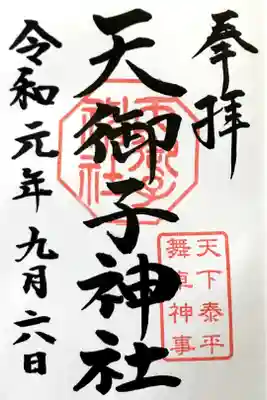 奉拝
天御子神社
天下泰平
舞車神事
令和元年九月六日